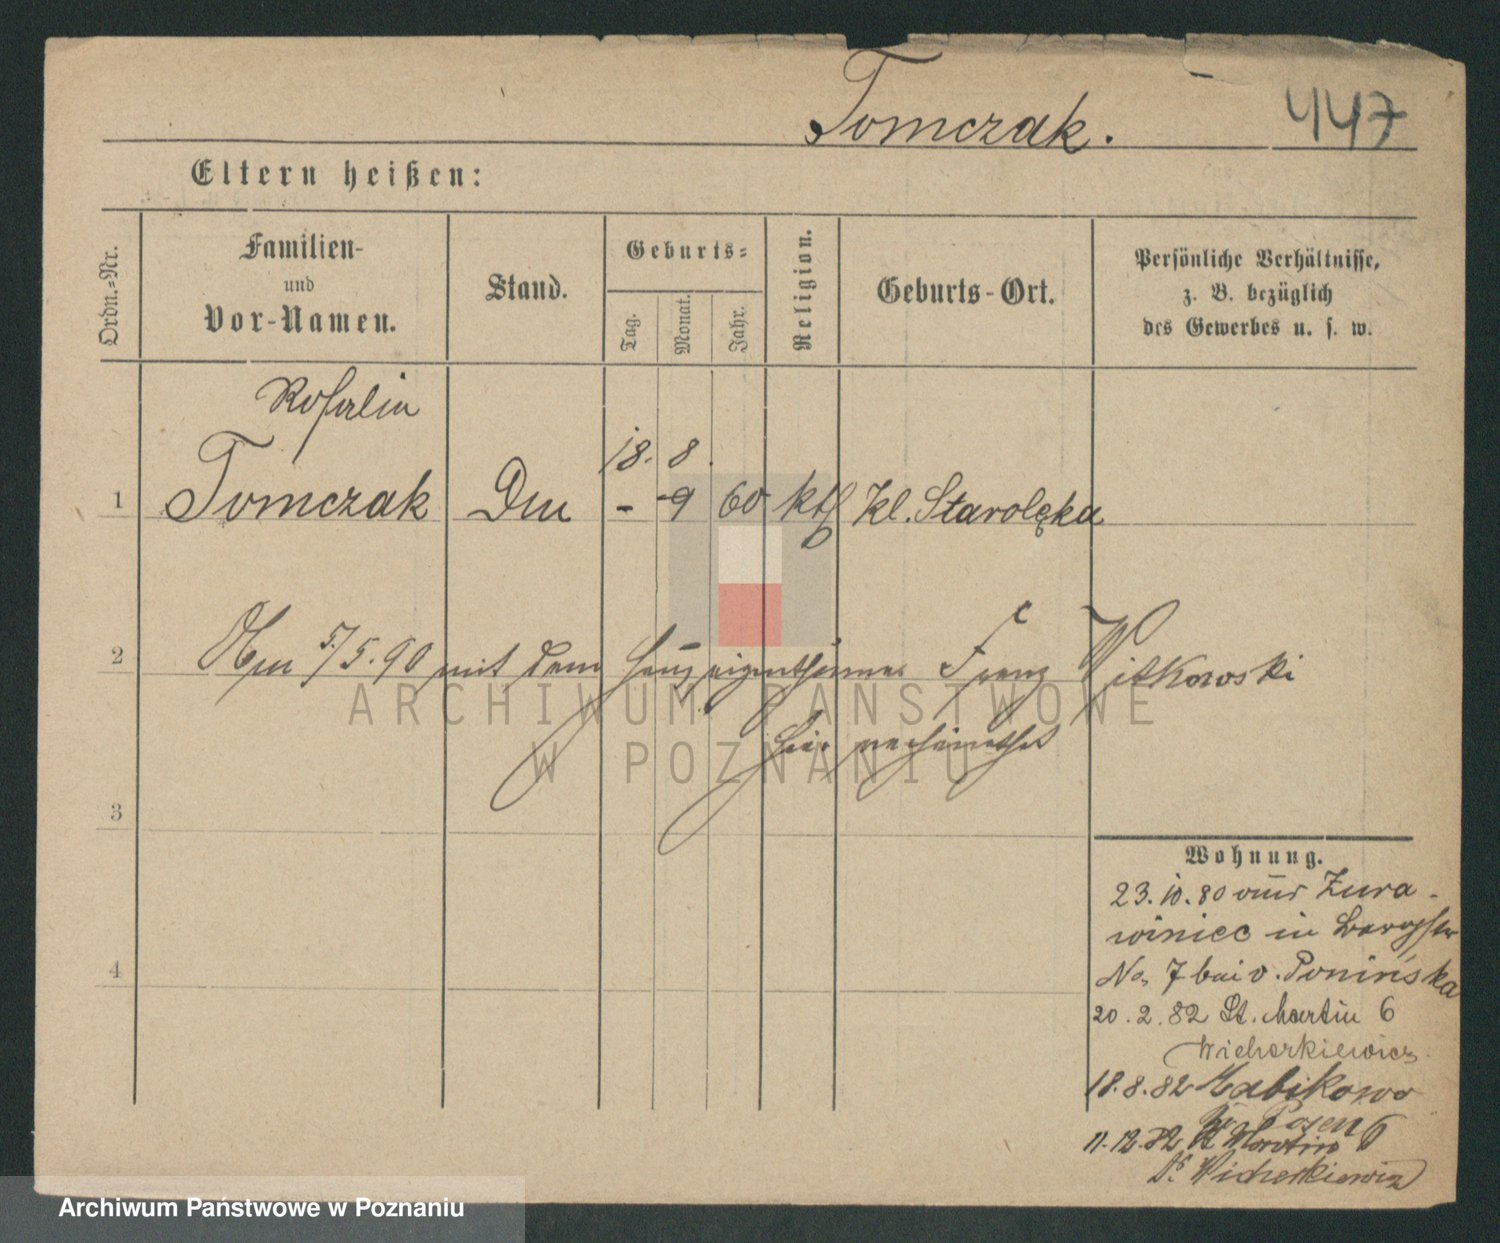 Tomczak. 447
Eltern heißen:
Ordn.-Nr.
Familien-
und
Vor-Namen.
Stand.
Geburts-
Tag.
Monat.
Jahr.
Religion.
Geburts-Ort.
Persönliche Verhältnisse,
z. B. bezüglich
des Gewerbes u. s. w.
Rosalia
18. 8.
1 Tomczak - 9 60 kth Kl. Starolęka
2 5/5. 90 mit dem Hauseigenthümer Franz Witkowski
hier verheirathet
3
4
Wohnung.
23. 10. 80 aus Zura-
winiec in
No. 7 bei v. Ponińska
20. 2. 82 St. Martin 6
Wicherkiewicz
18. 8. 82 Zabikowo
Posen
11. 12. 82 St Martin 6
Dr. Wicherkiewicz
ARCHIWUM PAŃSTWOWE
W POZNANIU
Archiwum Państwowe w Poznaniu